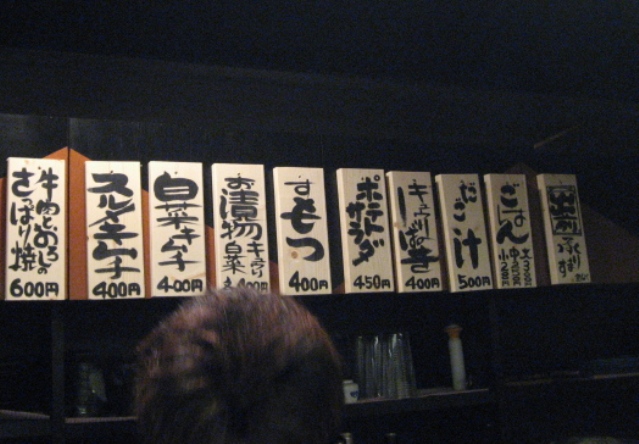 牛肉とおろしの
さっぱり焼
600円
スルメキムチ
400円
白菜キムチ
400円
お漬物
キュウリ
白菜
各400円
すもつ
400円
ポテト
サラダ
450円
キュウリ
400円
だご汁
500円
ごはん
大300円
小200円